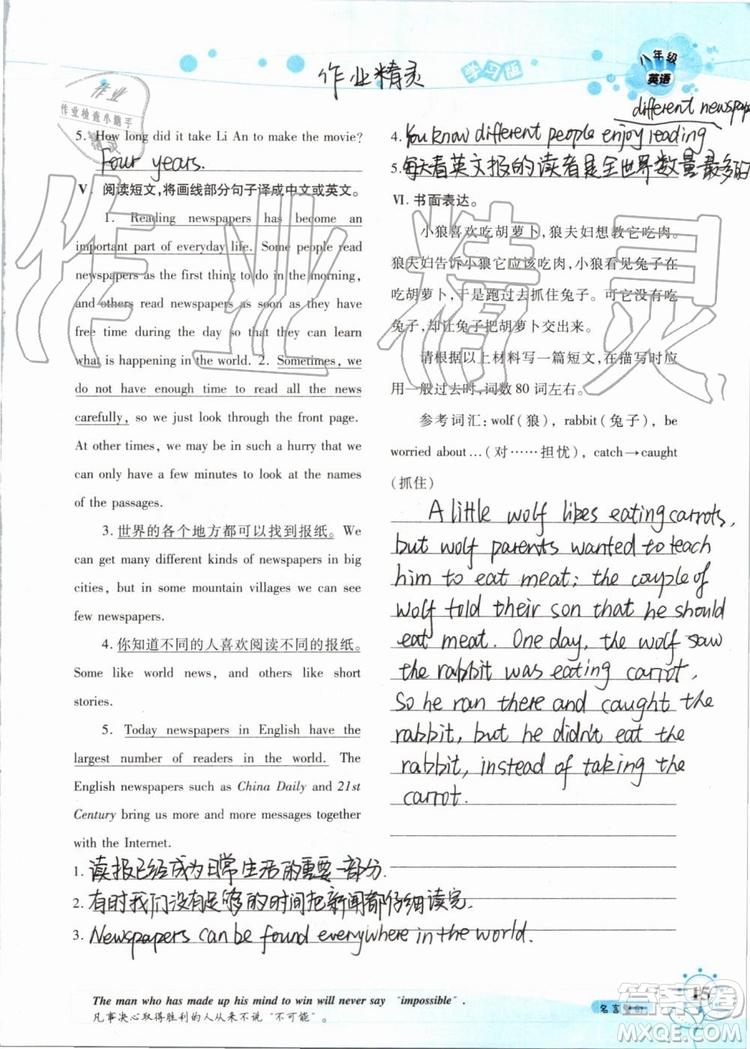 作业精灵
学习版
八年级
英语
作业
作业检查小助手
精灵
5. How long did it take Li An to make the movie?
Four years.
Ⅴ. 阅读短文,将画线部分句子译成中文或英文。
1. Reading newspapers has become an
important part of everyday life. Some people read
newspapers as the first thing to do in the morning,
and others read newspapers as soon as they have
free time during the day so that they can learn
what is happening in the world. 2. Sometimes, we
do not have enough time to read all the news
carefully, so we just look through the front page.
At other times, we may be in such a hurry that we
can only have a few minutes to look at the names
of the passages.
3. 世界的各个地方都可以找到报纸。We
can get many different kinds of newspapers in big
cities, but in some mountain villages we can see
few newspapers.
4. 你知道不同的人喜欢阅读不同的报纸。
Some like world news, and others like short
stories.
5. Today newspapers in English have the
largest number of readers in the world. The
English newspapers such as China Daily and 21st
Century bring us more and more messages together
with the Internet.
1. 读报已经成为日常生活的重要一部分.
2. 有时我们没有足够的时间把新闻都仔细读完.
3. Newspapers can be found everywhere in the world.
different newspape
4. You know different people enjoy reading
5. 每天看英文报的读者是全世界数量最多的
Ⅵ. 书面表达。
小狼喜欢吃胡萝卜,狼夫妇想教它吃肉。
狼夫妇告诉小狼它应该吃肉。小狼看见兔子在
吃胡萝卜,于是跑过去抓住兔子。可它没有吃
兔子,却让兔子把胡萝卜交出来。
请根据以上材料写一篇短文,在描写时应
用一般过去时,词数 80 词左右。
参考词汇:wolf(狼),rabbit(兔子),be
worried about…(对……担忧),catch→caught
(抓住)
A little wolf likes eating carrots,
but wolf parents wanted to teach
him to eat meat; the couple of
wolf told their son that he should
eat meat. One day, the wolf saw
the rabbit was eating carrot.
So he ran there and caught the
rabbit, but he didn't eat the
rabbit, instead of taking the
carrot.
The man who has made up his mind to win will never say "impossible".
凡事决心取得胜利的人从来不说"不可能"。
15
作业精灵
答案圈
MXQE.COM